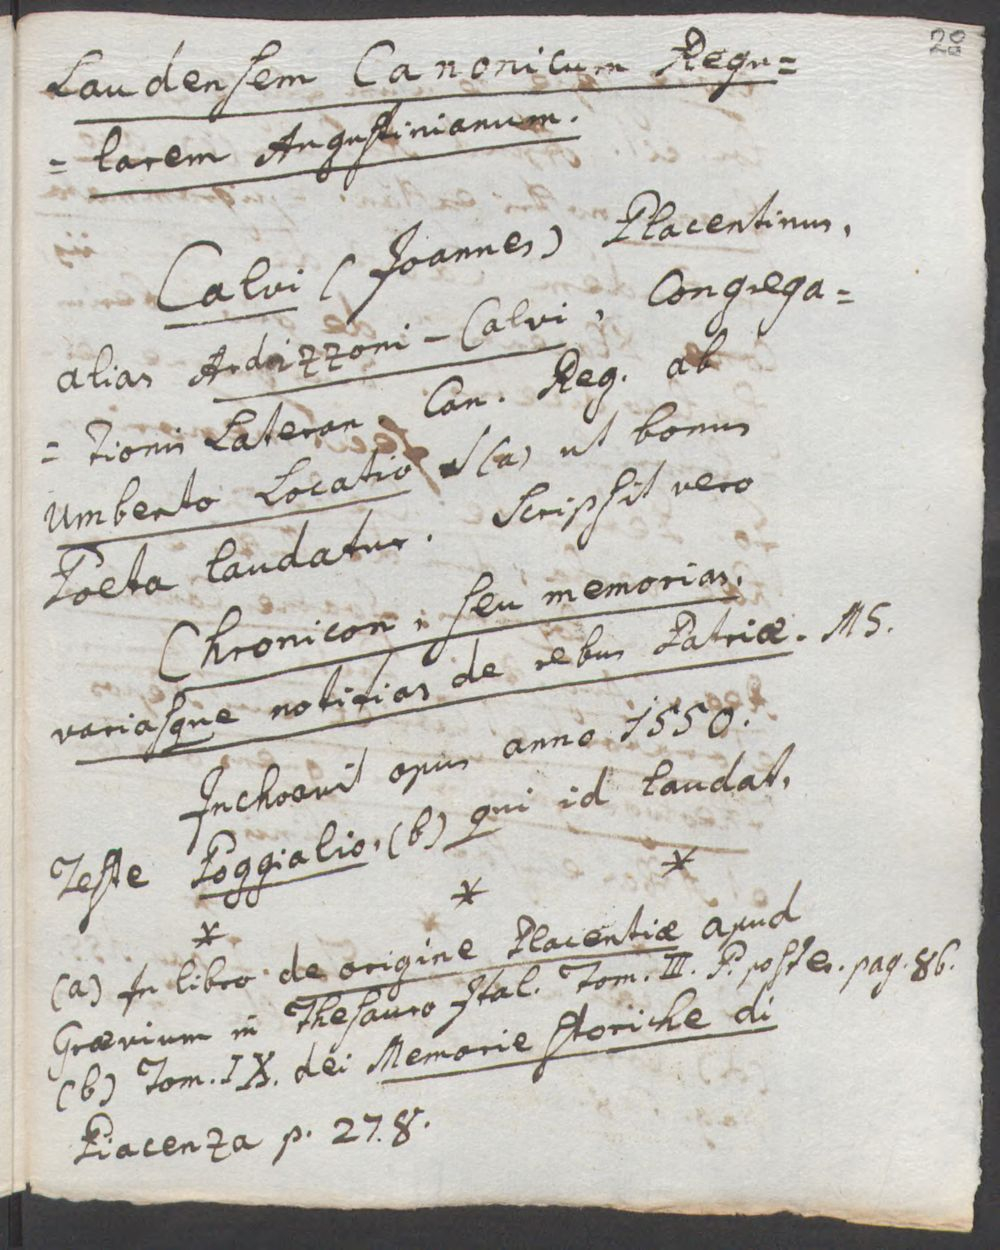 20
Laudensem Canonicum Regu=
=larem Augustinianum.
Calvi (Joannes) Placentinus,
alias Ardizzoni-Calvi, Congrega=
=tionis Lateran. Can. Reg. ab
Umberto Locatio (a) ut bonus
Poeta laudatur. Scripsit vero
Chronicon, seu memorias,
variasque notitias de rebus Patriæ. MS.
Inchoavit opus anno 1550.
Teste Poggialio, (b) qui id laudat.
* * *
(a) In libro de origine Placentiæ apud
Grævium in Thesauro Ital. Tom. III. P. poster. pag. 86.
(b) Tom. IX. dei Memorie storiche di
Piacenza p. 278.